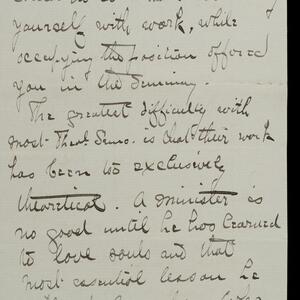 yourself with work, while
occupying the position offered
you in the Seminary
The greatest difficulty with
most Theol. Sems. is that their work
has been too exclusively
theoretical. A minister is
no good until he has learned
to love souls and that
most essential lesson he